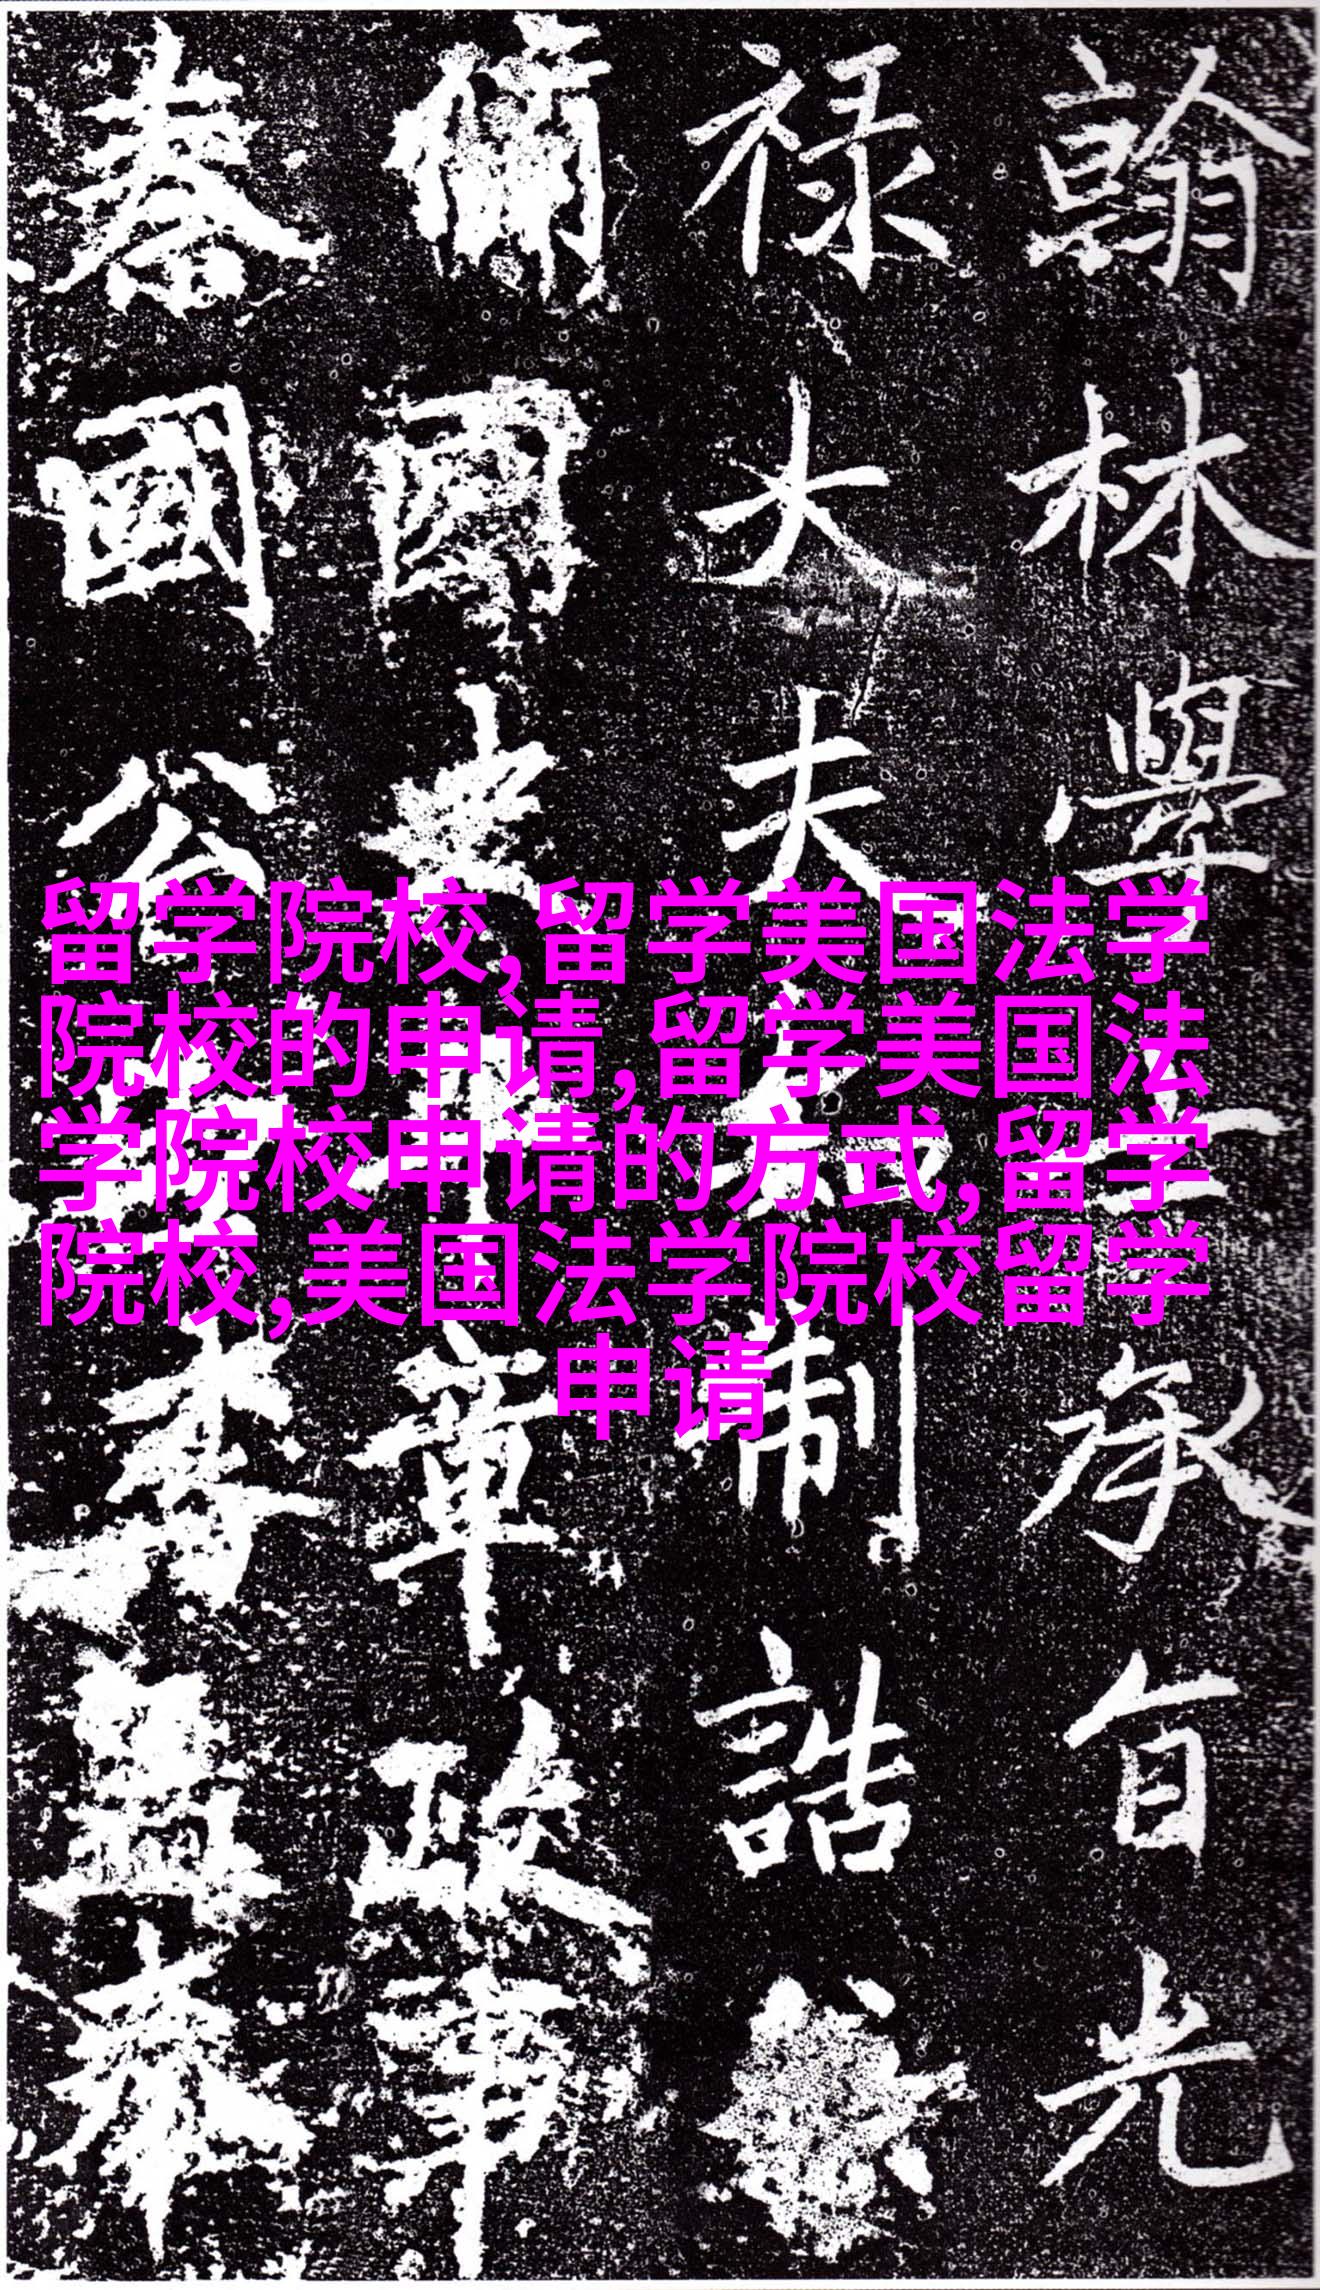 留学院校,留学美国法学
院校的申请,留学美国法
学院校申请的方式,留学
院校,美国法学院校留学
申请
翰林學士承旨光
禄大夫知制誥
國史章政事
國公李孟奉